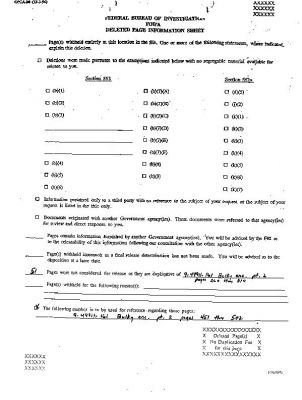 XXXXXX
XXXXXX
XXXXXX
FEDERAL BUREAU OF INVESTIGATION
FOIPA
DELETED PAGE INFORMATION SHEET
Page(s) withheld entirely at this location in the file. One or more of the following statements, where indicated,
explain this deletion.
Deletions were made pursuant to the exemptions indicated below with no segregable material available for
release to you.
Section 552 Section 552a
(b)(1) (b)(7)(A) (d)(5)
(b)(2) (b)(7)(B) (j)(2)
(b)(3) (b)(7)(C) (k)(1)
(b)(7)(D) (k)(2)
(b)(7)(E) (k)(3)
(b)(7)(F) (k)(4)
(b)(4) (b)(8) (k)(5)
(b)(5) (b)(9) (k)(6)
(b)(6) (k)(7)
Information pertained only to a third party with no reference to the subject of your request or the subject of your
request is listed in the title only.
Documents originated with another Government agency(ies). These documents were referred to that agency(ies)
for review and direct response to you.
Pages contain information furnished by another Government agency(ies). You will be advised by the FBI as
to the releasability of this information following our consultation with the other agency(ies).
Page(s) withheld inasmuch as a final release determination has not been made. You will be advised as to the
disposition at a later date.
Pages were not considered for release as they are duplicative of Bulky enc. pt. 2
pages
Page(s) withheld for the following reason(s):
The following number is to be used for reference regarding these pages:
Bulky enc. pt 2 pages 457 thru 502
XXXXXXXXXXXXXXXX
X Deleted Page(s) X
X No Duplication Fee X
X for this page X
XXXXXXXXXXXXXXXX
XXXXXX
XXXXXX
XXXXXX